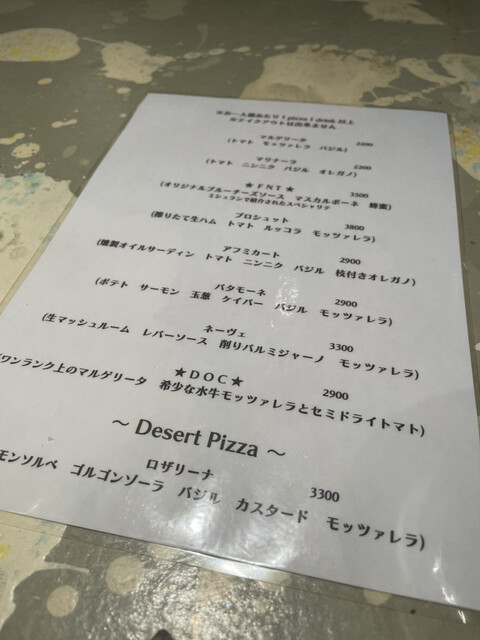 ※お一人様あたり1 pizza 1 drink 以上
※テイクアウトは出来ません
マルゲリータ 2200
(トマト モッツァレラ バジル)
マリナーラ 2200
(トマト ニンニク バジル オレガノ)
★FNT★ 3500
(オリジナルブルーチーズソース マスカルポーネ 蜂蜜)
ミシュランで紹介されたスペシャリテ
プロシュット 3800
(削りたて生ハム トマト ルッコラ モッツァレラ)
アフミカート 2900
(燻製オイルサーディン トマト ニンニク バジル 枝付きオレガノ)
パタモーネ 2900
(ポテト サーモン 玉葱 ケイパー バジル モッツァレラ)
ネーヴェ 3300
(生マッシュルーム レバーソース 削りパルミジャーノ モッツァレラ)
★DOC★ 2900
(ワンランク上のマルゲリータ 希少な水牛モッツァレラとセミドライトマト)
～ Desert Pizza ～
ロザリーナ 3300
モンソルベ ゴルゴンゾーラ バジル カスタード モッツァレラ)